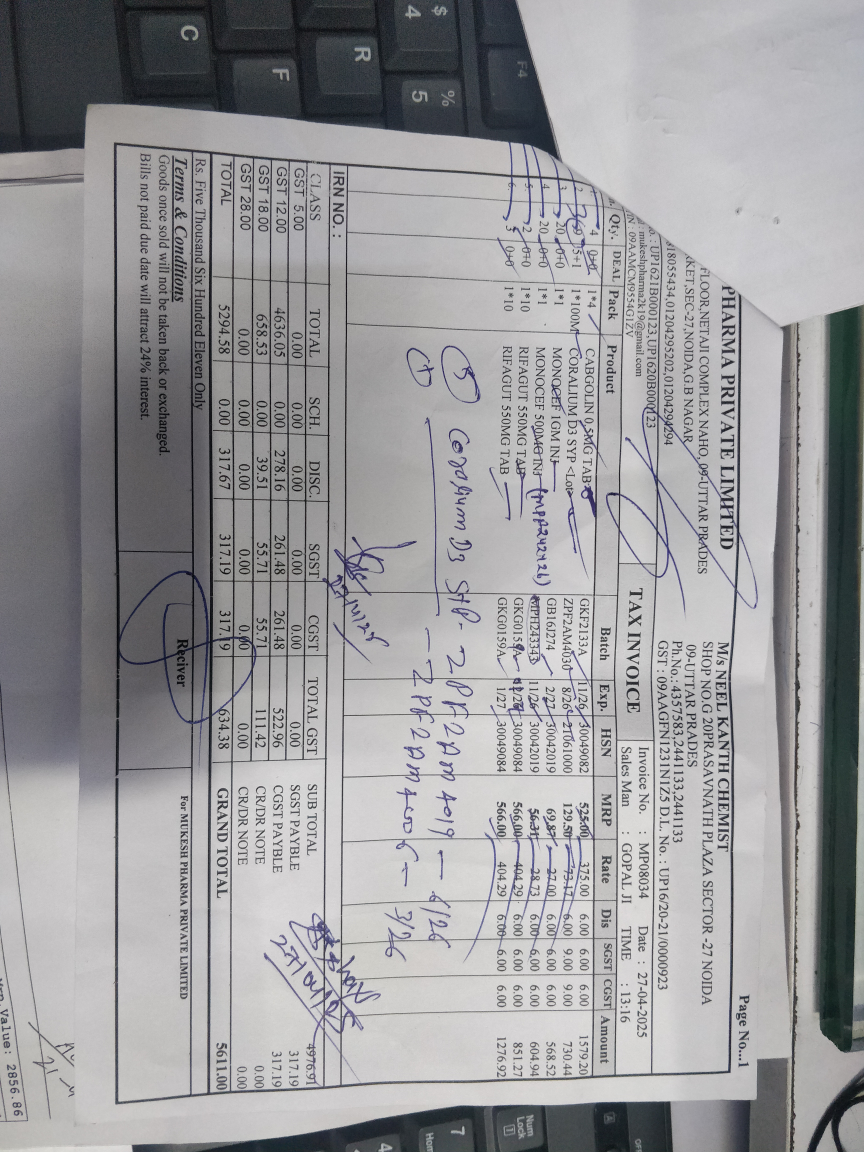 PHARMA PRIVATE LIMITED
FLOOR,NETAJI COMPLEX NAHO, 09-UTTAR PRADES
KET,SEC-27,NOIDA,G.B NAGAR
318055434,01204295202,01204294294
. : UP1621B000123,UP1620B000123
: mukeshpharma2k19@gmail.com
N : 09AAMCM9554G1ZV
TAX INVOICE
Page No...1
M/s NEEL KANTH CHEMIST
SHOP NO.G 20PRASAVNATH PLAZA SECTOR -27 NOIDA
09-UTTAR PRADES
Ph.No.: 4357583,2441133,2441133
GST : 09AAGFN1231N1Z5 D.L. No. : UP16/20-21/0000923
Invoice No. : MP08034 Date : 27-04-2025
Sales Man : GOPAL JI TIME : 13:16
Qty. DEAL Pack Product Batch Exp. HSN MRP Rate Dis SGST CGST Amount
4 0+0 1*4 CABGOLIN 0.5MG TAB GKF2133A 11/26 30049082 525.00 375.00 6.00 6.00 6.00 1579.20
2. 5+1 1*100M CORALIUM D3 SYP <Lot> ZPF2AM4030 8/26 21061000 129.50 73.17 6.00 9.00 9.00 730.44
3. 20 0+0 1*1 MONOCEF 1GM INJ GB16J274 2/27 30042019 69.87 27.00 6.00 6.00 6.00 568.52
4. 20 0+0 1*1 MONOCEF 500MG INJ (MPH242426) MPH243343 11/26 30042019 56.31 28.73 6.00 6.00 6.00 604.94
5. 2 0+0 1*10 RIFAGUT 550MG TAB GKG0159A 30049084 566.00 404.29 6.00 6.00 6.00 851.27
6. 3 0+0 1*10 RIFAGUT 550MG TAB GKG0159A 1/27 30049084 566.00 404.29 6.00 6.00 6.00 1276.92
Coralium D3 SYP - ZPF2AM4019 - 6/26
- ZPF2AM4006 - 3/26
27/04/25
27/04/25
IRN NO. :
CLASS TOTAL SCH. DISC. SGST CGST TOTAL GST
GST 5.00 0.00 0.00 0.00 0.00 0.00 0.00
GST 12.00 4636.05 0.00 278.16 261.48 261.48 522.96
GST 18.00 658.53 0.00 39.51 55.71 55.71 111.42
GST 28.00 0.00 0.00 0.00 0.00 0.00 0.00
TOTAL 5294.58 0.00 317.67 317.19 317.19 634.38
SUB TOTAL 4976.91
SGST PAYBLE 317.19
CGST PAYBLE 317.19
CR/DR NOTE 0.00
CR/DR NOTE 0.00
GRAND TOTAL 5611.00
Rs. Five Thousand Six Hundred Eleven Only
Terms & Conditions
Goods once sold will not be taken back or exchanged.
Bills not paid due date will attract 24% interest.
Reciver
For MUKESH PHARMA PRIVATE LIMITED
Value: 2856.86
$
4
%
5
F4
R
F
C
Num
Lock
1
7
Hom
4